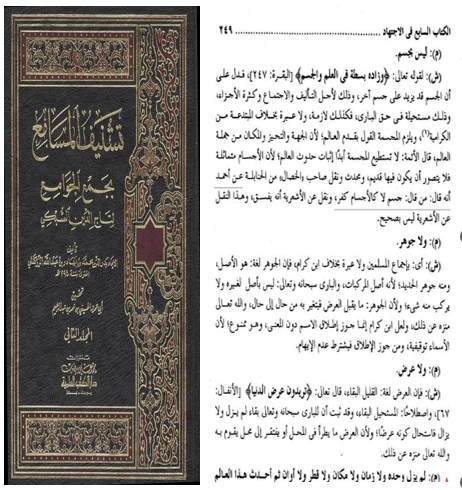 تشنيف المسامع
بجمع الجوامع
لتاج الدين السبكي
تأليف
تحقيق
المجلد الثاني
دار الكتب العلمية
الكتاب السابع فى الاجتهاد
٢٤٩
(م): ليس بجسم.
(ش): لقوله تعالى: ﴿وزاده بسطة فى العلم والجسم﴾ [البقرة: ٢٤٧]، فدل على
أن الجسم قد يزيد على جسم آخر، وذلك لأجل التأليف والاجتماع وكثرة الأجزاء،
وذلك مستحيلة فى حق البارى، فكذلك لازمة، ولا عبرة بخلاف المبتدعة من
الكرامية(١)، ويلزم المجسمة القول بقدم العالم؛ لأن الجهة والتحيز والمكان من جملة
العالم، قال الأئمة: لا تستطيع المجسمة أبدًا إثبات حدوث العالم؛ لأن الأجسام متماثلة
فلا يتصور أن يكون فيها قديم، ومحدث ونقل صاحب «الخصال» من الحنابلة عن أحمد
أنه قال: من قال: جسم لا كالأجسام كفر، ونقل عن الأشعرية أنه يفسق، وهذا النقل
عن الأشعرية ليس بصحيح.
(م): ولا جوهر.
(ش): أى: بإجماع المسلمين ولا عبرة بخلاف ابن كرام، فإن الجوهر لغة: هو الأصل،
ومنه جوهر الحديد؛ لأنه أصل المركبات، والبارى سبحانه وتعالى: ليس بأصل لغيره ولا
يركب منه شىء؛ ولأن الجوهر: ما يقبل العرض فيتغير به من حال إلى حال، والله تعالى
منزه عن ذلك، ولعل ابن كرام إنما جوز إطلاق الاسم دون المعنى، وهو ممنوع؛ لأن
الأسماء توقيفية، ومن جوز الإطلاق فيشترط عدم الإيهام.
(م): ولا عرض.
(ش): فإن العرض لغة: القليل البقاء، قال تعالى: ﴿تريدون عرض الدنيا﴾ [الأنفال:
٦٧]، واصطلاحًا: المستحيل البقاء، وقد ثبت أن للبارى سبحانه وتعالى بقاء لم يزل ولا
يزال فاستحال كونه عرضًا؛ ولأن العرض ما يطرأ فى المحل أو يفتقر إلى محل يقوم به
والله تعالى منزه عن ذلك.
(م): لم يزل وحده ولا زمان ولا مكان ولا قطر ولا أوان ثم أحدث هذا العالم